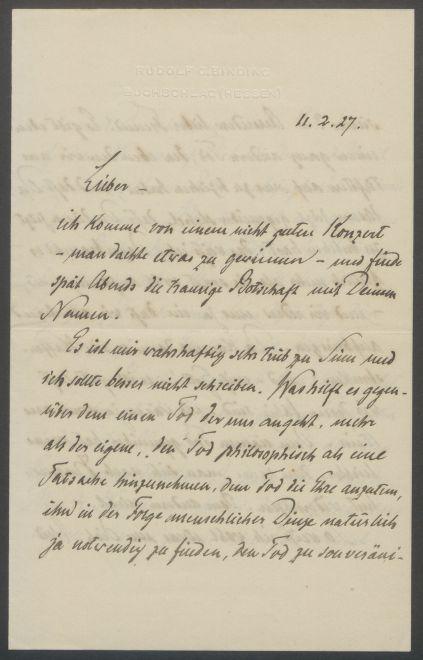 RUDOLF G. BINDING
BUCHSCHLAG (HESSEN)
11. 2. 27.
Lieber –
ich komme von einem nicht guten Konzert
– man dachte etwas zu gewinnen – und finde
spät Abends die traurige Botschaft mit Deinem
Namen.
Es ist mir wahrhaftig sehr trüb zu Sinn und
ich sollte besser nicht schreiben. Was hilft es gegen-
über dem einen Tod der uns angeht, mehr
als der eigene, den Tod philosophisch als eine
Tatsache hinzunehmen, dem Tod die Ehre anzutun,
ihn in der Folge menschlicher Dinge natürlich
ja notwendig zu finden, den Tod zu souveräni-